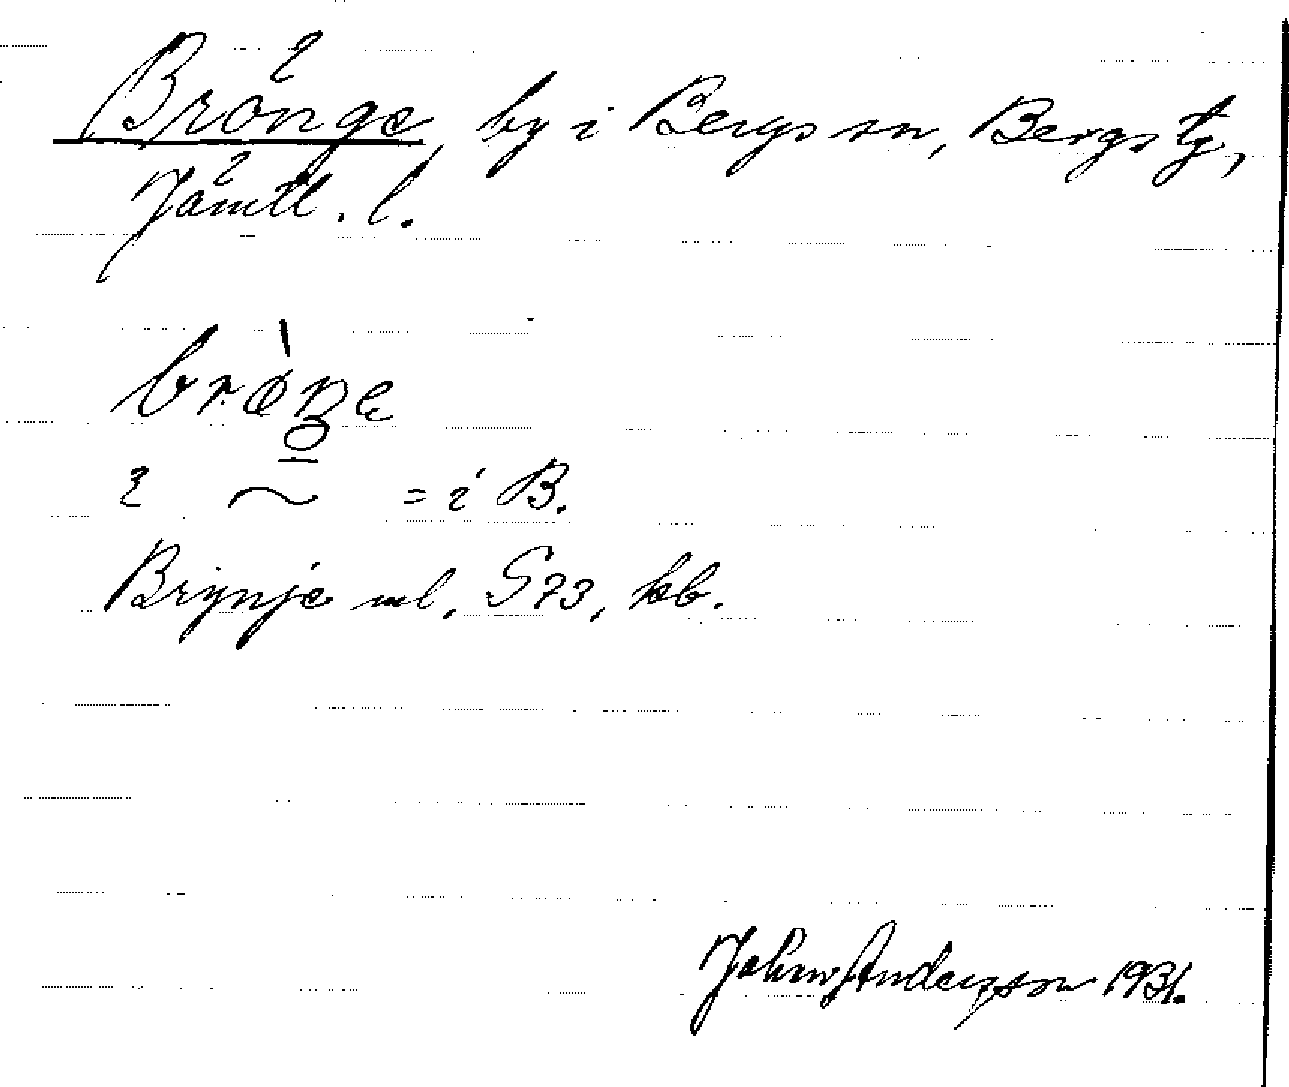 Brönge, by i Bergs sn, Bergs tg,
Jämtl. l.
i ~ = i B.
Brynje ml, G23, kb.
John Anderzson 1931.